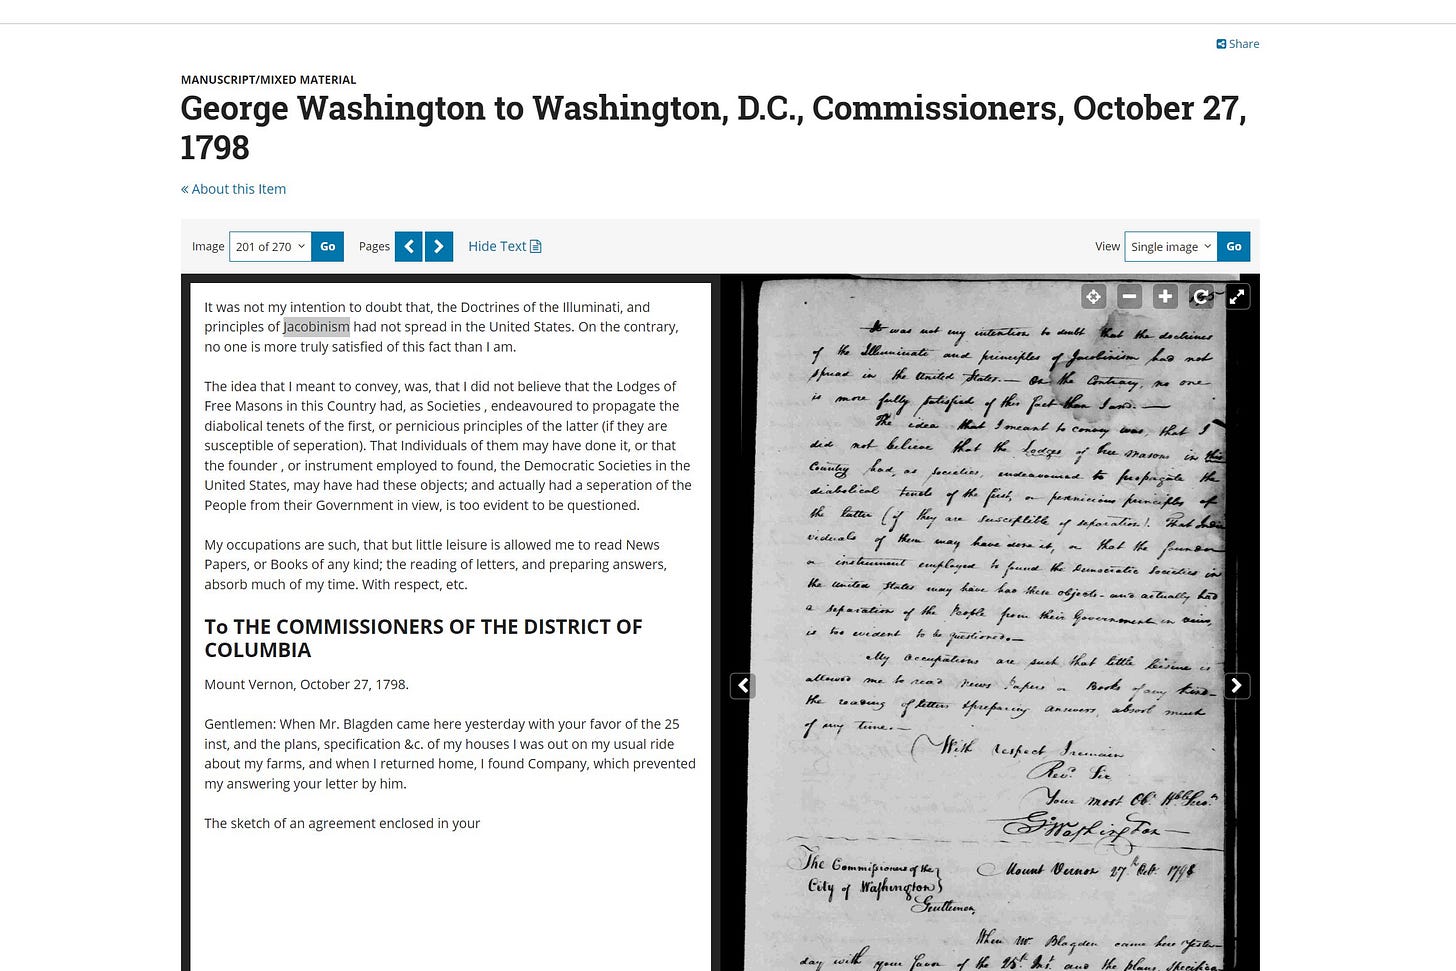 Share
MANUSCRIPT/MIXED MATERIAL
George Washington to Washington, D.C., Commissioners, October 27,
1798
« About this Item
Image 201 of 270 Go Pages Hide Text View Single image Go
It was not my intention to doubt that, the Doctrines of the Illuminati, and
principles of Jacobinism had not spread in the United States. On the contrary,
no one is more truly satisfied of this fact than I am.
The idea that I meant to convey, was, that I did not believe that the Lodges of
Free Masons in this Country had, as Societies , endeavoured to propagate the
diabolical tenets of the first, or pernicious principles of the latter (if they are
susceptible of seperation). That Individuals of them may have done it, or that
the founder , or instrument employed to found, the Democratic Societies in the
United States, may have had these objects; and actually had a seperation of the
People from their Government in view, is too evident to be questioned.
My occupations are such, that but little leisure is allowed me to read News
Papers, or Books of any kind; the reading of letters, and preparing answers,
absorb much of my time. With respect, etc.
To THE COMMISSIONERS OF THE DISTRICT OF
COLUMBIA
Mount Vernon, October 27, 1798.
Gentlemen: When Mr. Blagden came here yesterday with your favor of the 25
inst, and the plans, specification &c. of my houses I was out on my usual ride
about my farms, and when I returned home, I found Company, which prevented
my answering your letter by him.
The sketch of an agreement enclosed in your
It was not my intention to doubt that the doctrines
of the Illuminati and principles of Jacobinism had not
spread in the United States.— On the Contrary, no one
is more fully satisfied of this fact than I am.—
The idea that I meant to convey was, that I
did not believe that the Lodges of Free Masons in this
Country had, as societies, endeavoured to propagate the
diabolical tenets of the first, or pernicious principles of
the latter (if they are susceptible of separation). That Indi
viduals of them may have done it, or that the founder
or instrument employed to found the Democratic Societies in
the United States may have had these objects—and actually had
a separation of the People from their Government in view,
is too evident to be questioned.—
My occupations are such that little leisure is
allowed me to read News Papers or Books of any kind—
the reading of letters & preparing answers, absorb much
of my time.—
With respect I remain
Revd. Sir
Your most Ob.
Go Washington
The Commissioners of the
City of Washington
Mount Vernon 27th Octr. 1798
Gentlemen,
When Mr. Blagden came here yester-
day with your favor of the 25th Inst. and the plans, specifica-